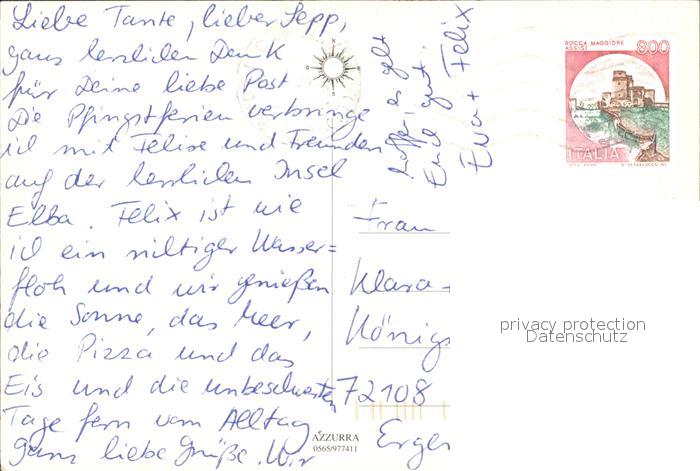 Liebe Tante, lieber Sepp,
ganz herzlichen Dank
für Deine liebe Post
Die Pfingstferien verbringe
ich mit Felix und Freunden
auf der herrlichen Insel
Elba. Felix ist wie
ich ein richtiger Wasser=
floh und wir genießen
die Sonne, das Meer,
die Pizza und das
Eis und die unbeschwerten
Tage fern vom Alltag
Ganz liebe Grüße. Wir
hoffen, es geht
Euch gut.
Eva + Felix
ROCCA MAGGIORE
ASSISI
800
ITALIA
Frau
Klara
Königs
72108
Erge
AZZURRA
0565/977411
privacy protection
Datenschutz